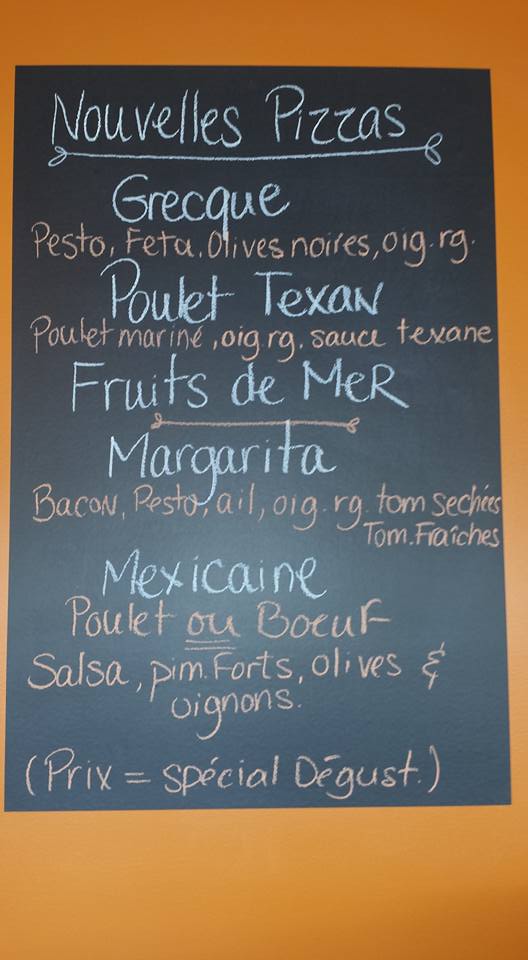 Nouvelles Pizzas
Grecque
Pesto, Feta, Olives noires, oig. rg.
Poulet Texan
Poulet mariné, oig rg, sauce texane
Fruits de MeR
Margarita
Bacon, Pesto, ail, oig. rg. tom sechées
Tom. Fraîches
Mexicaine
Poulet ou Boeuf
Salsa, pim. Forts, olives &
oignons.
(Prix = spécial Dégust.)